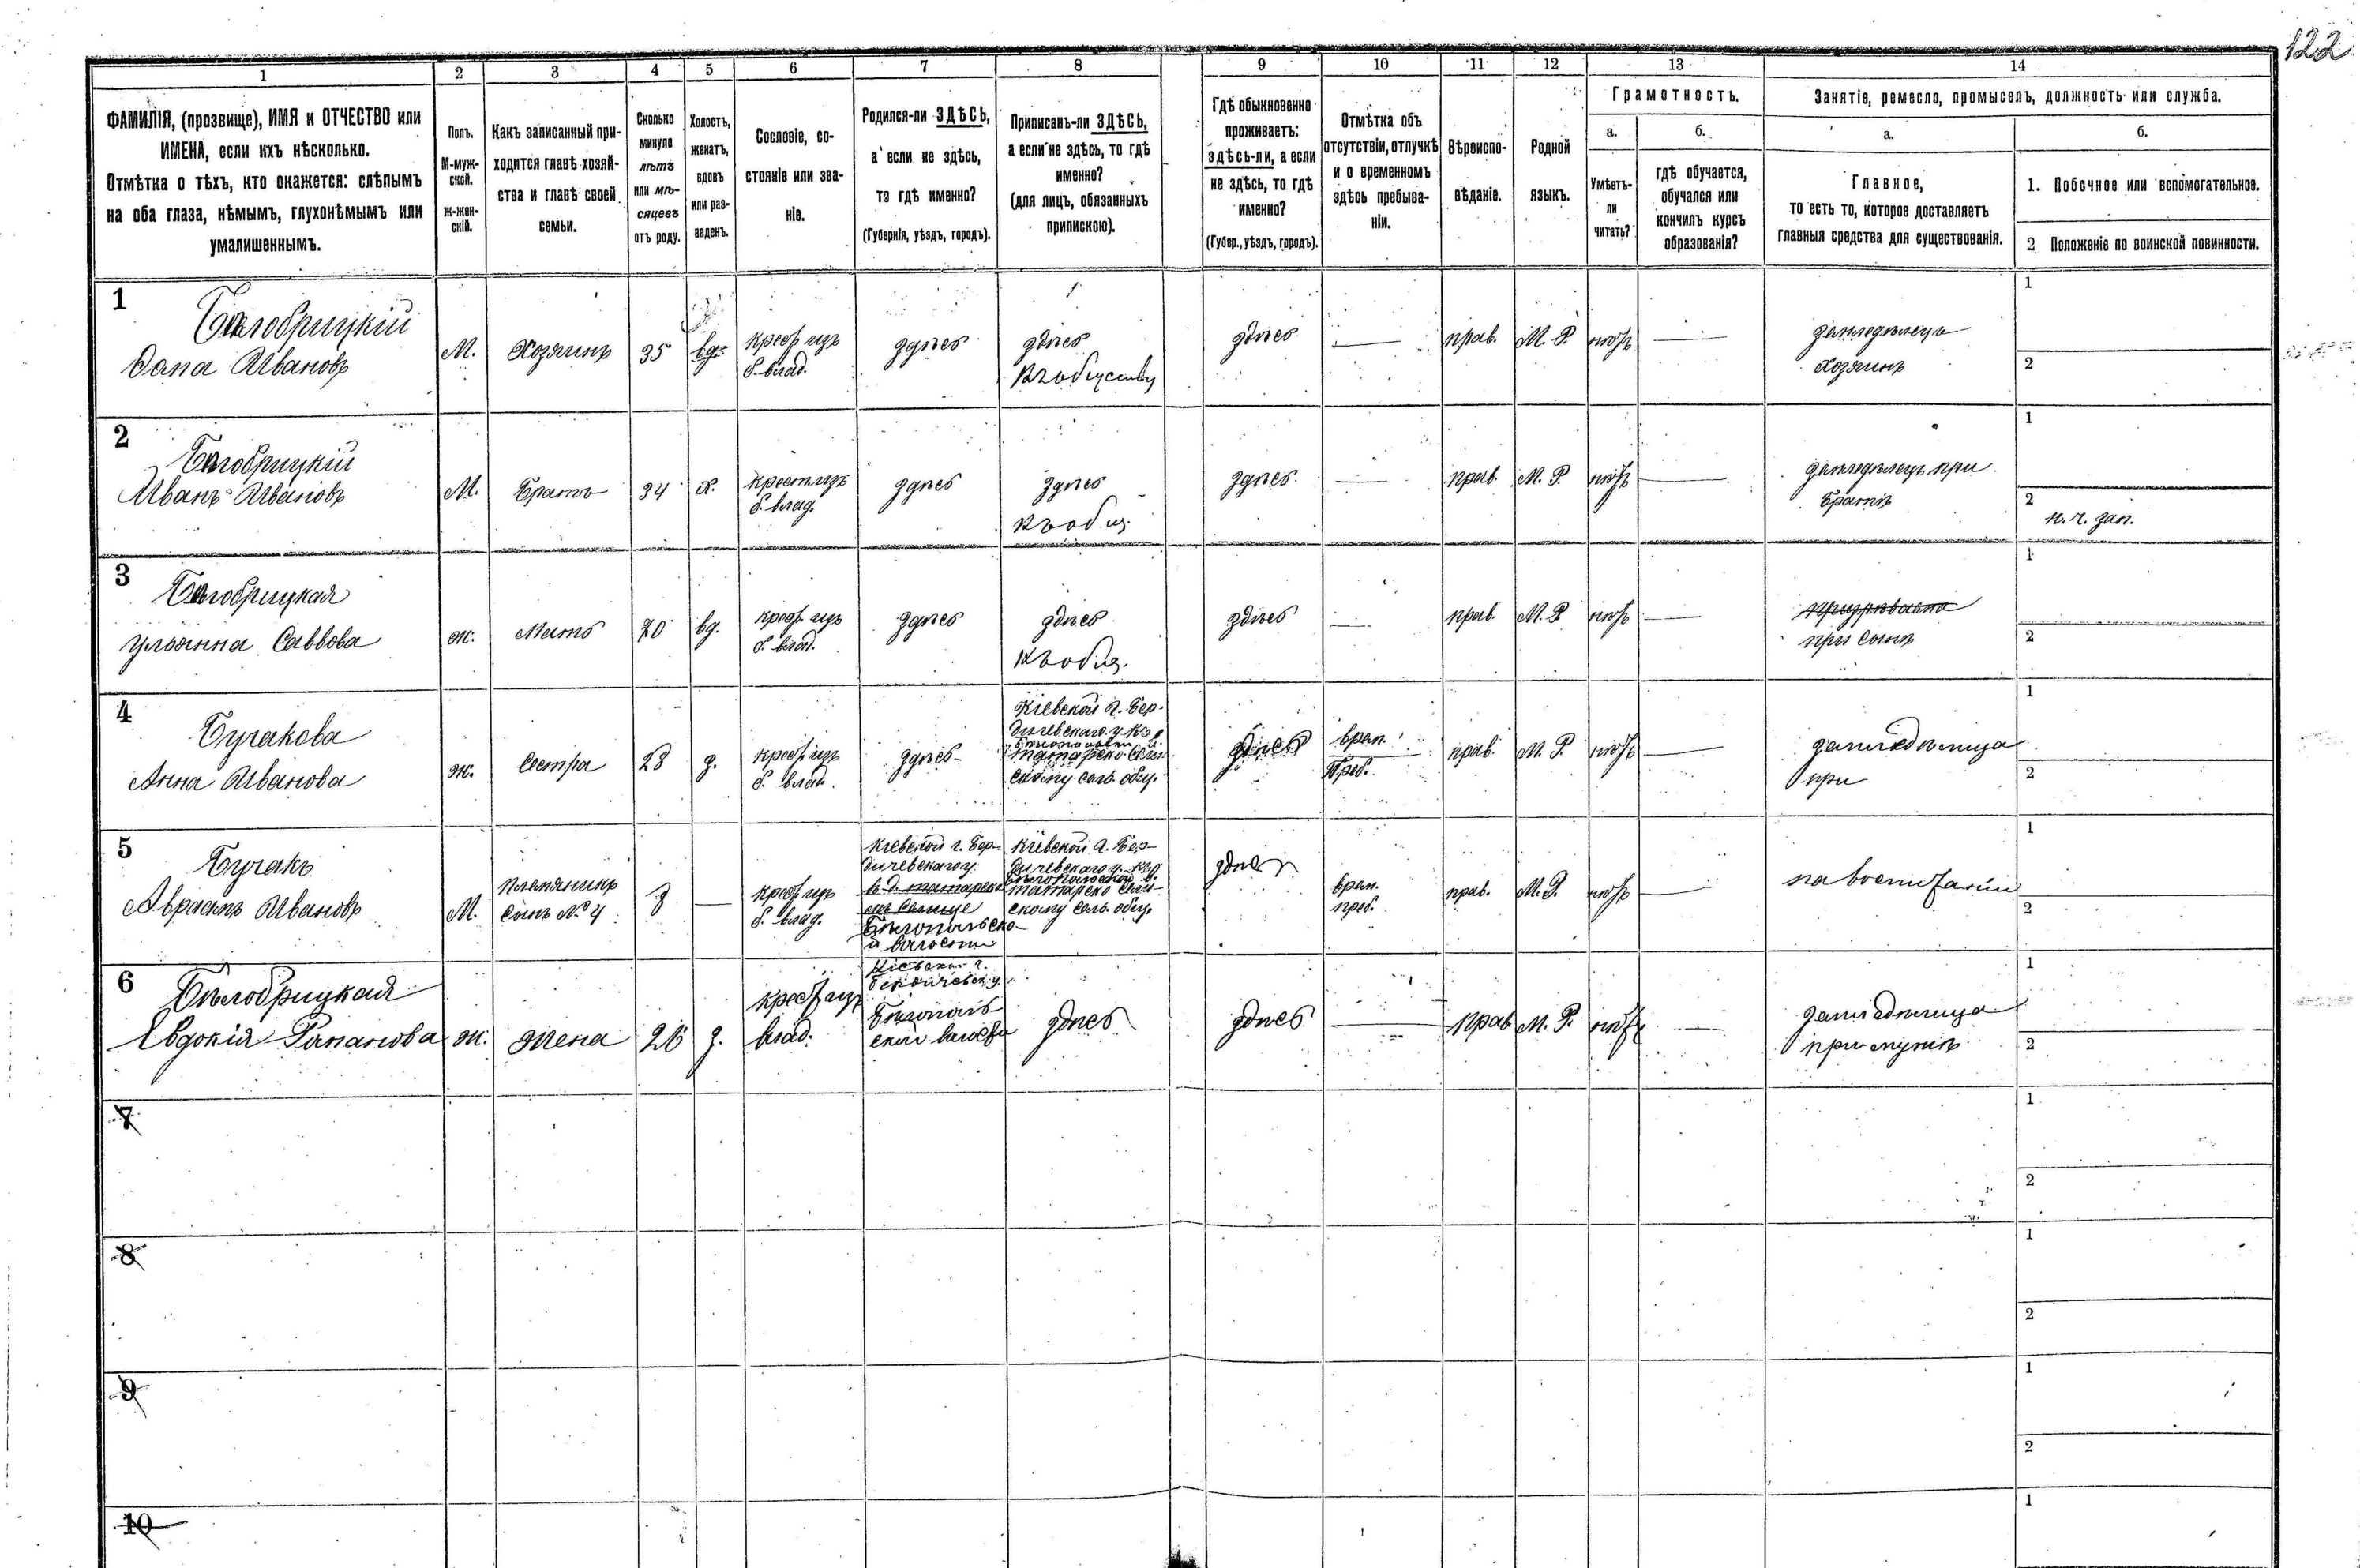 122
1 2 3 4 5 6 7 8 9 10 11 12 13 14
ФАМИЛІЯ, (прозвище), ИМЯ и ОТЧЕСТВО или
ИМЕНА, если ихъ нѣсколько.
Отмѣтка о тѣхъ, кто окажется: слѣпымъ
на оба глаза, нѣмымъ, глухонѣмымъ или
умалишеннымъ.
Полъ.
М-муж-
ской.
Ж-жен-
скій.
Какъ записанный при-
ходится главѣ хозяй-
ства и главѣ своей
семьи.
Сколько
минуло
лѣтъ
или мѣ-
сяцевъ
отъ роду.
Холостъ,
женатъ,
вдовъ
или раз-
веденъ.
Сословіе, со-
стояніе или зва-
ніе.
Родился-ли ЗДѢСЬ,
а если не здѣсь,
то гдѣ именно?
(Губернія, уѣздъ, городъ).
Приписанъ-ли ЗДѢСЬ,
а если не здѣсь, то гдѣ
именно?
(для лицъ, обязанныхъ
припискою).
Гдѣ обыкновенно
проживаетъ:
здѣсь-ли, а если
не здѣсь, то гдѣ
именно?
(Губер., уѣздъ, городъ).
Отмѣтка объ
отсутствіи, отлучкѣ
и о временномъ
здѣсь пребыва-
ніи.
Вѣроиспо-
вѣданіе.
Родной
языкъ.
Грамотность.
а.
Умѣетъ-
ли
читать?
б.
гдѣ обучается,
обучался или
кончилъ курсъ
образованія?
Занятіе, ремесло, промыселъ, должность или служба.
а.
Главное,
то есть то, которое доставляетъ
главныя средства для существованія.
б.
1. Побочное или вспомогательное.
2 Положеніе по воинской повинности.
1
Бѣлобрицкій
Иванов
М.
Хозяинъ
35
вд.
крест. изъ
б. влад.
здѣсь
здѣсь
къ обществу
здѣсь
—
прав.
М. Р.
нѣтъ
—
земледѣлецъ
Хозяинъ
1
2
2
Бѣлобрицкій
Иванъ Ивановъ
М.
Братъ
34
х.
крест. изъ
б. влад.
здѣсь
здѣсь
къ общ.
здѣсь
—
прав.
М. Р.
нѣтъ
—
земледѣлецъ при
братѣ
1
2
н. ч. зап.
3
Бѣлобрицкая
Ульянна Саввова
ж.
Мать
70
вд.
крест. изъ
б. влад.
здѣсь
здѣсь
къ общ.
здѣсь
—
прав.
М. Р.
нѣтъ
—
при сынѣ
1
2
4
Бугакова
Анна Иванова
ж.
Сестра
28
з.
крест. изъ
б. влад.
здѣсь
Кіевской г. Бер-
дичевскаго у.
Татарско Сели-
скому сель. общ.
здѣсь
врем.
Преб.
прав.
М. Р.
нѣтъ
—
земледѣлица
при
1
2
5
Бугакъ
Авраамъ Ивановъ
М.
племянникъ
Сынъ № 4
3
—
крест. изъ
б. влад.
Кіевской г. Бер-
дичевскаго у.
Бѣлопольско-
й волости
Кіевской г. Бер-
дичевскаго у.
Татарско Сели-
скому сель. общ.
здѣсь
врем.
преб.
прав.
М. Р.
нѣтъ
—
на воспитаніи
1
2
6
Бѣлобрицкая
Евдокія Романова
ж.
жена
26
з.
крест. изъ
влад.
Кіевской г.
Бердичевск. у.
Бѣлополь-
ской волости
здѣсь
здѣсь
—
прав
М. Р.
нѣтъ
—
земледѣлица
при мужѣ
1
2
7
1
2
8
1
2
9
1
2
10
1